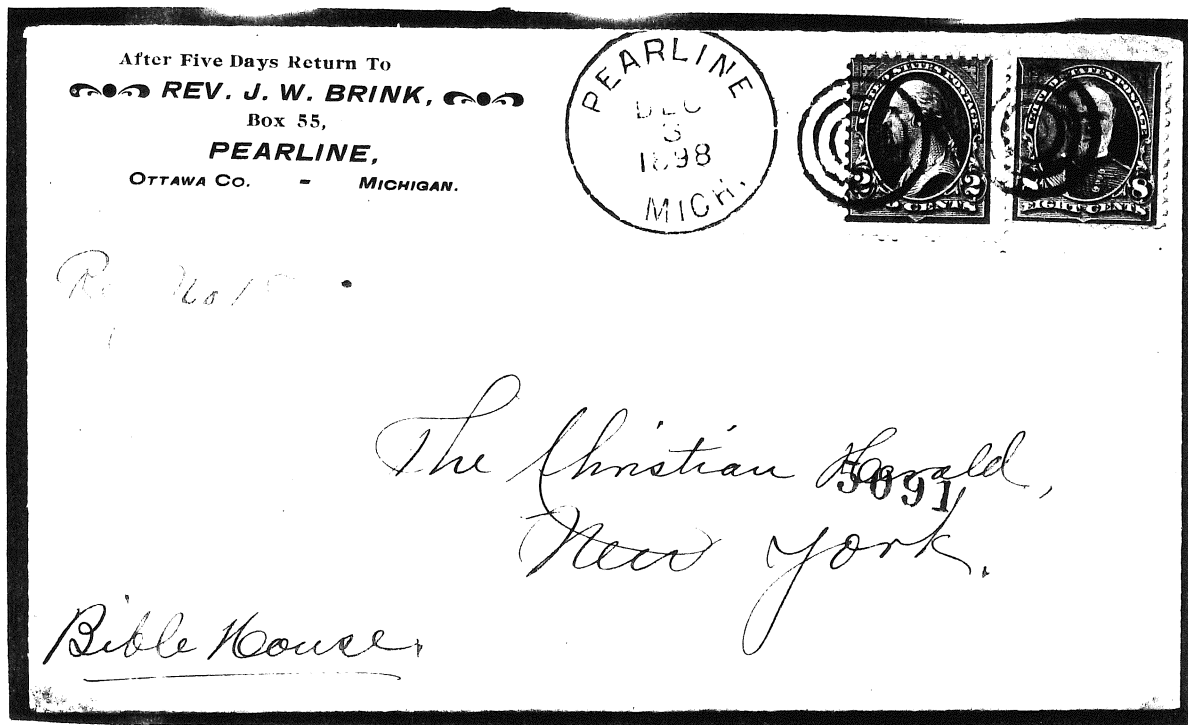 After Five Days Return To
REV. J. W. BRINK,
Box 55,
PEARLINE,
OTTAWA CO. - MICHIGAN.
PEARLINE
DEC
3
1898
MICH.
UNITED STATES POSTAGE
2 2
CENTS
8
EIGHT CENTS
No 1
The Christian Herald,
5691
New York.
Bible House.